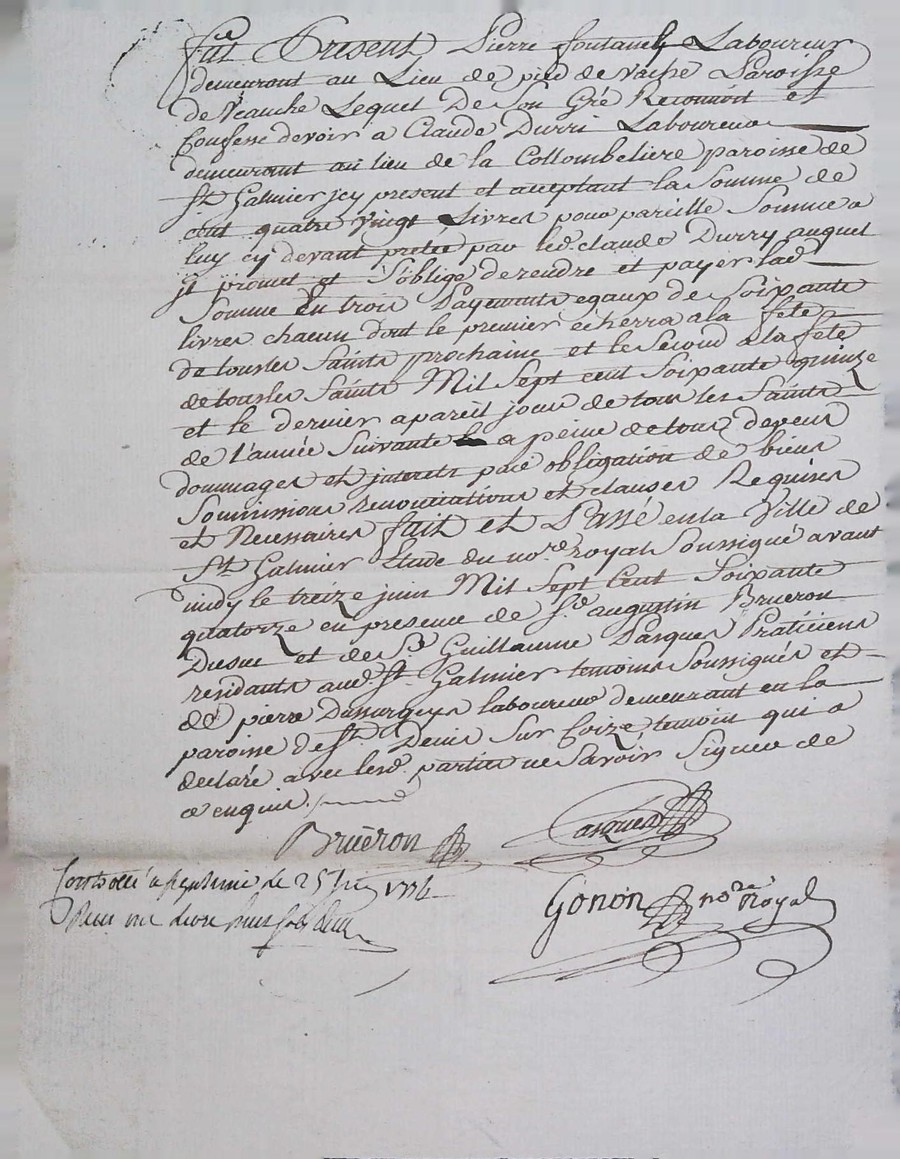 fut Present Pierre fontanel Laboureur
demeurant au Lieu de pied de vache Paroisse
de Veauche Lequel De Son Gré Reconnoit et
Confesse devoir a Claude Durri Laboureur
demeurant au lieu de la Collombeliere paroisse de
St Galmier jcy present et acceptant la Somme de
cent quatre vingt Livres pour pareille Somme a
luy cy devant pretée par led. claude Durry auquel
jl promet et S'oblige de rendre et payer lad.
Somme En trois Payements egaux de Soixante
livres chacun dont le premier écherra a la fete
de tous les Saints prochaine et le Second a la fete
de tous les Saints Mil Sept cent Soixante quinze
et le dernier a pareil jour de tous les Saints
de l'année Suivante a peine de tous depens
dommages et jnterets par obligation de biens
Soumissions Renonciations et clauses Requises
et Necessaires fait et Passé en la Ville de
St Galmier Etude du nore. royal Soussigné avant
midy le treize juin Mil Sept Cent Soixante
quatorze en presence de Sr. augustin Brueron
Dusuc et de Sr. Guillaume Pasques Praticiens
residants aud. St. Galmier temoins Soussignés et
de pierre Dussurgeys laboureur demeurant en la
paroisse de St. Denis Sur Coize temoin qui a
declaré avec lesd. parties ne Savoir Signer de
ce enquis
Bruëron Pasques
Controllé a St galmier le 25 juin 1774
Reçu une livre huit sols
Gonon nore Royal